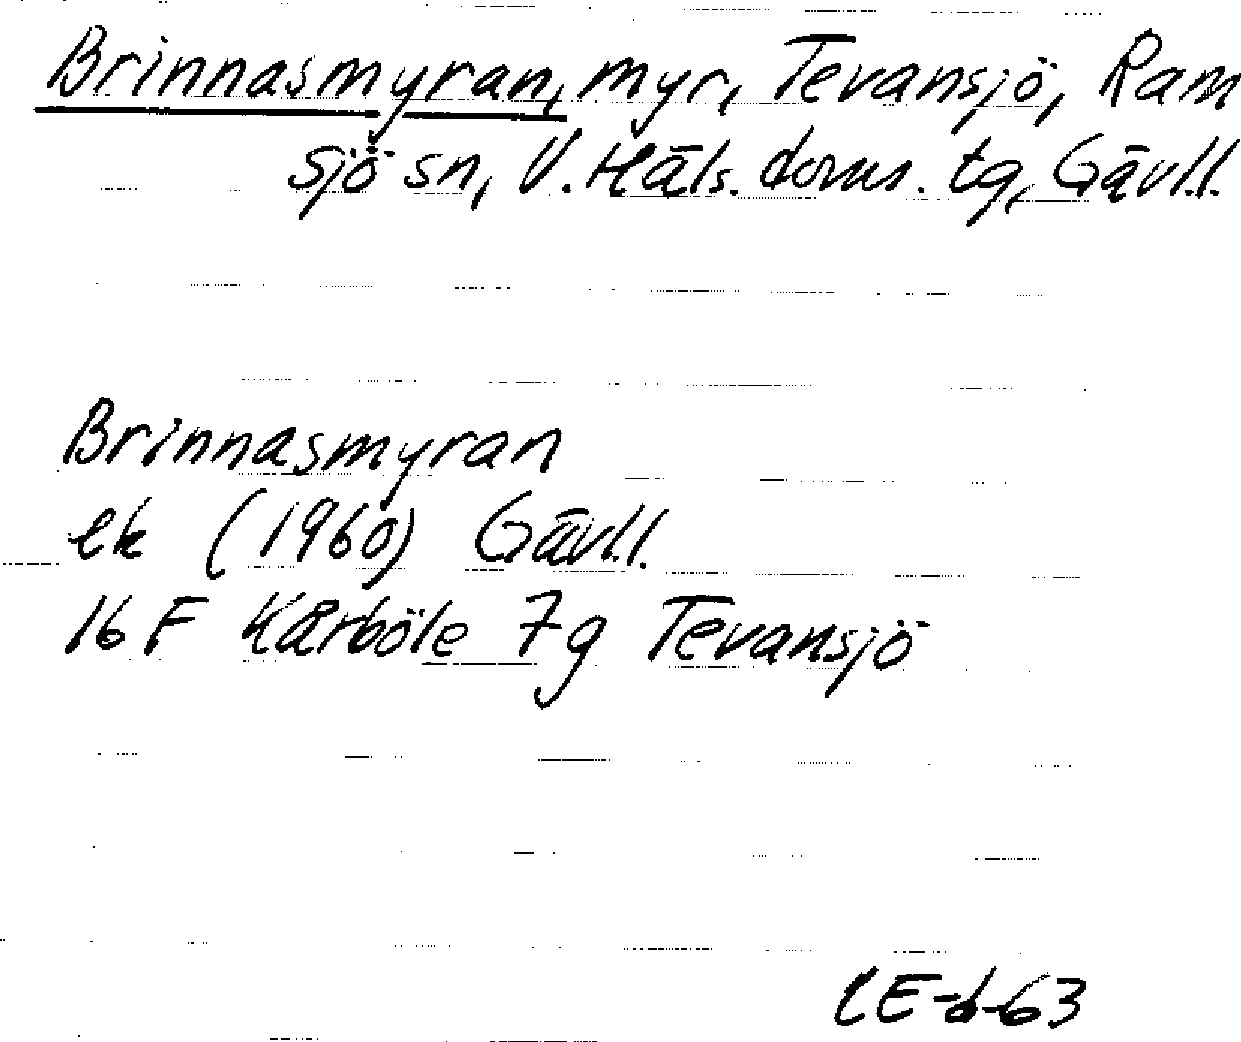 Brinnasmyran, myr, Tevansjö, Ram
sjö sn, V. Häls. doms. tg, Gävl.l.
Brinnasmyran
ek (1960) Gävl.l.
16 F Kårböle 7g Tevansjö
CE-6-63